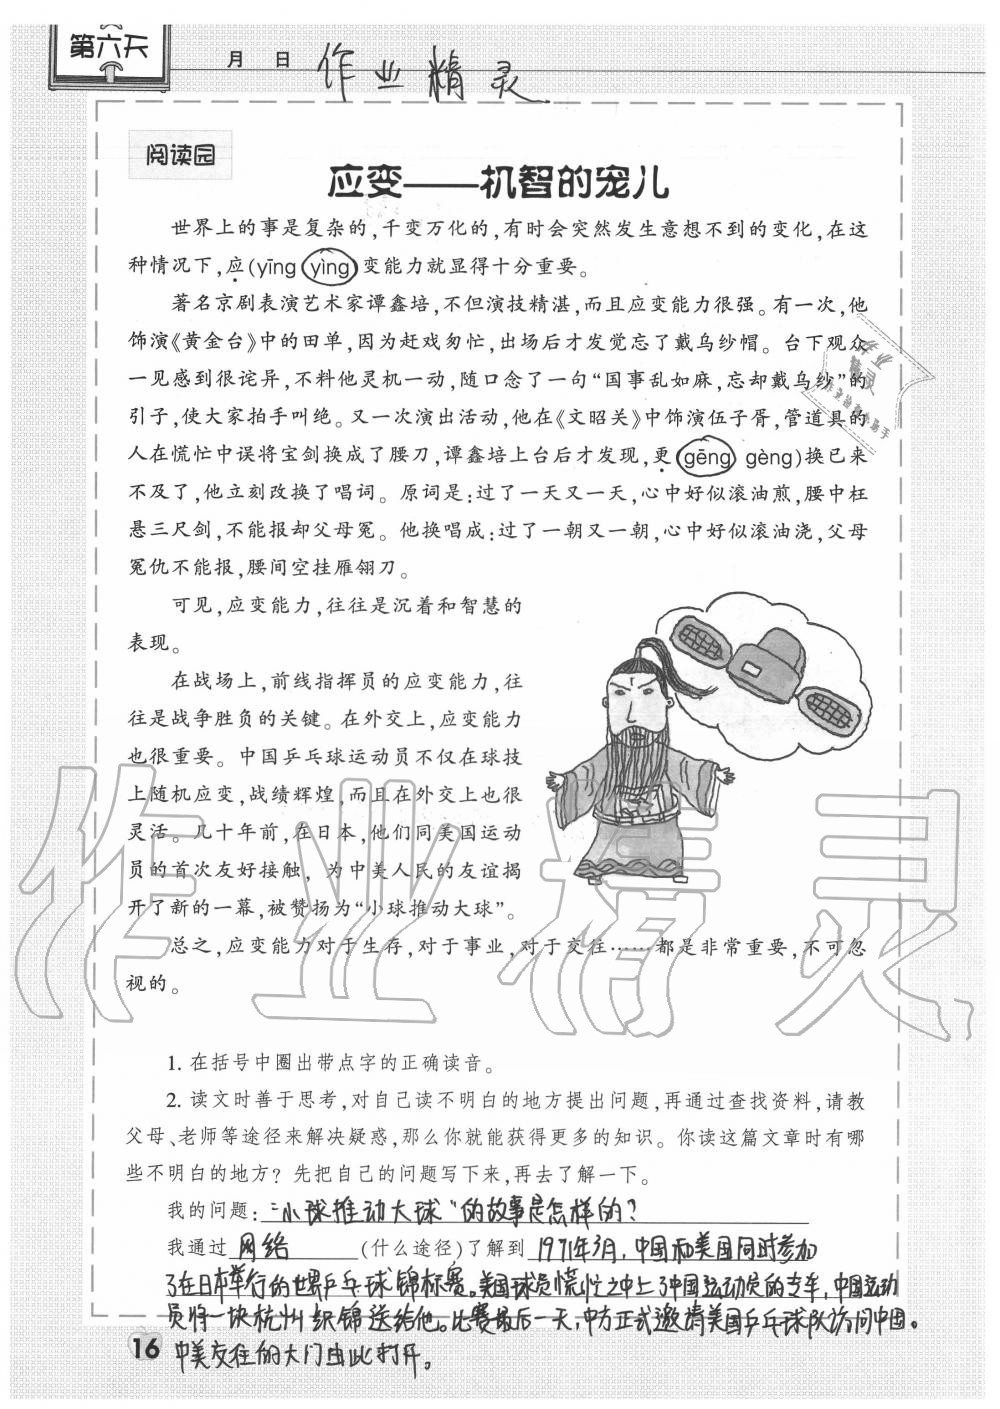 第六天
月 日 作业精灵
阅读园
应变——机智的宠儿
世界上的事是复杂的,千变万化的,有时会突然发生意想不到的变化,在这
种情况下,应(yīng yìng)变能力就显得十分重要。
著名京剧表演艺术家谭鑫培,不但演技精湛,而且应变能力很强。有一次,他
饰演《黄金台》中的田单,因为赶戏匆忙,出场后才发觉忘了戴乌纱帽。台下观众
一见感到很诧异,不料他灵机一动,随口念了一句“国事乱如麻,忘却戴乌纱”的
引子,使大家拍手叫绝。又一次演出活动,他在《文昭关》中饰演伍子胥,管道具的
人在慌忙中误将宝剑换成了腰刀,谭鑫培上台后才发现,更(gēng gèng)换已来
不及了,他立刻改换了唱词。原词是:过了一天又一天,心中好似滚油煎,腰中枉
悬三尺剑,不能报却父母冤。他换唱成:过了一朝又一朝,心中好似滚油浇,父母
冤仇不能报,腰间空挂雁翎刀。
可见,应变能力,往往是沉着和智慧的
表现。
在战场上,前线指挥员的应变能力,往
往是战争胜负的关键。在外交上,应变能力
也很重要。中国乒乓球运动员不仅在球技
上随机应变,战绩辉煌,而且在外交上也很
灵活。几十年前,在日本,他们同美国运动
员的首次友好接触,为中美人民的友谊揭
开了新的一幕,被赞扬为“小球推动大球”。
总之,应变能力对于生存,对于事业,对于交往……都是非常重要,不可忽
视的。
作业精灵
1. 在括号中圈出带点字的正确读音。
2. 读文时善于思考,对自己读不明白的地方提出问题,再通过查找资料,请教
父母、老师等途径来解决疑惑,那么你就能获得更多的知识。你读这篇文章时有哪
些不明白的地方?先把自己的问题写下来,再去了解一下。
我的问题:“小球推动大球”的故事是怎样的?
我通过 网络 (什么途径)了解到 1971年3月,中国和美国同时参加
了在日本举行的世界乒乓球锦标赛。美国球员慌忙之中上了中国运动员的专车,中国运动
员将一块杭州织锦送给他。比赛最后一天,中方正式邀请美国乒乓球队访问中国。
中美交往的大门由此打开。
16